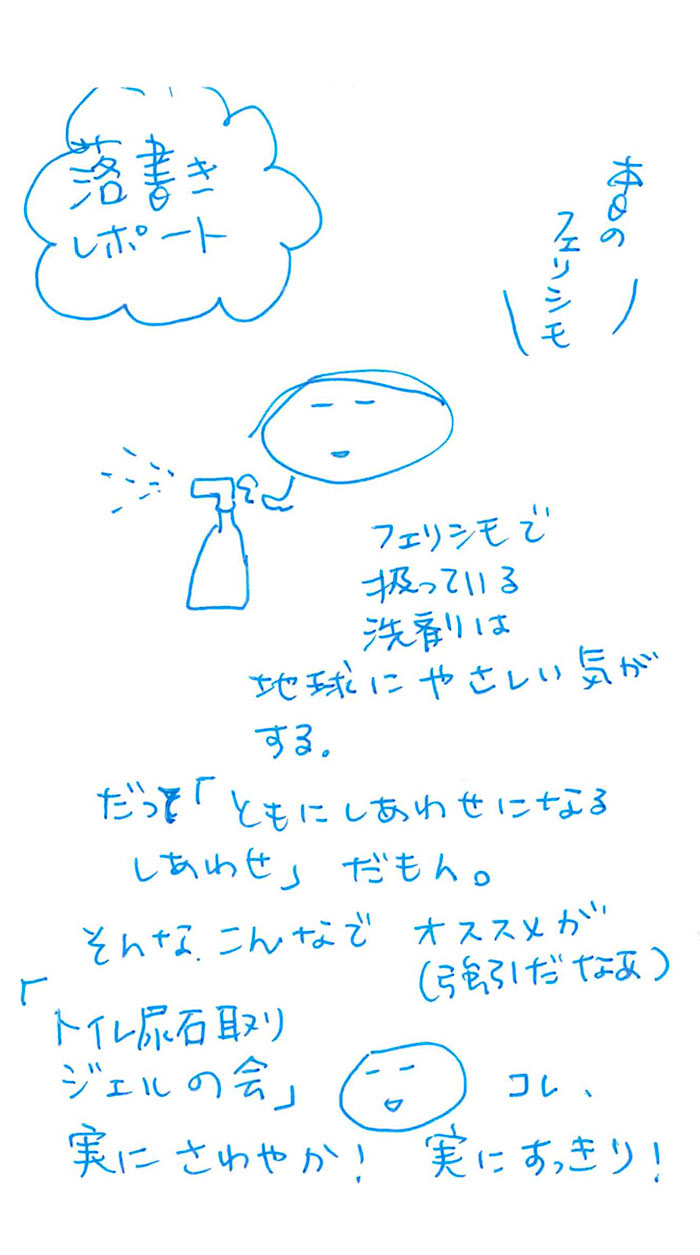 落書き
レポート
本日の
フェリシモ
フェリシモで
扱っている
洗剤は
地球にやさしい気が
する。
だって「ともにしあわせになる
しあわせ」だもん。
そんな、こんなで オススメが
(強引だなあ)
「トイレ尿石取り
ジェルの会」 コレ、
実にさわやか! 実にすっきり!